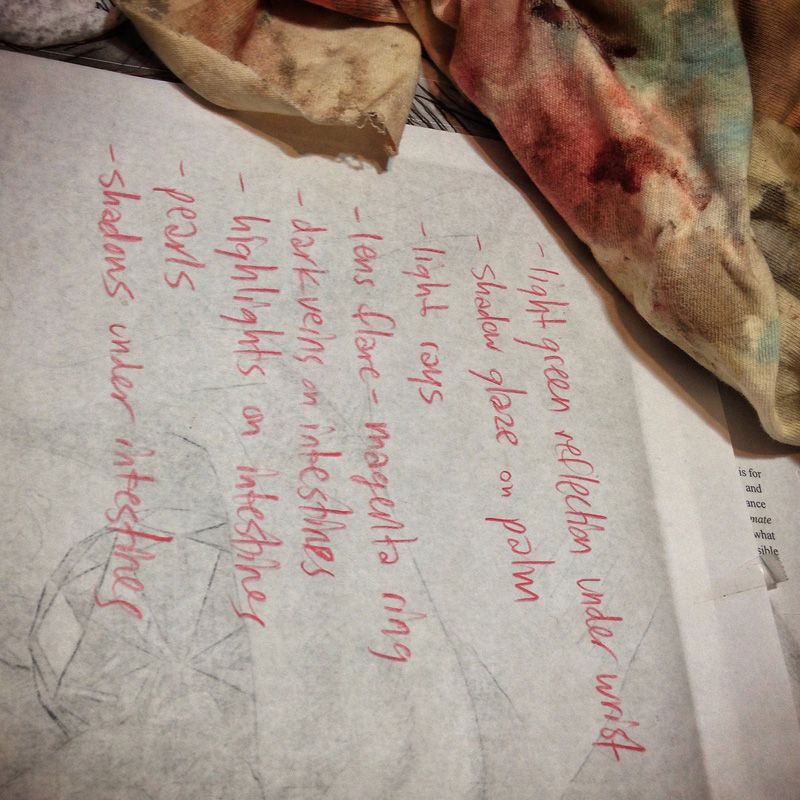 - light green reflection under wrist
- shadow glaze on palm
- light rays
- lens flare - magenta ring
- dark veins on intestines
- highlights on intestines
- pearls
- shadows under intestines
is for
and
ance
mate
what
sible